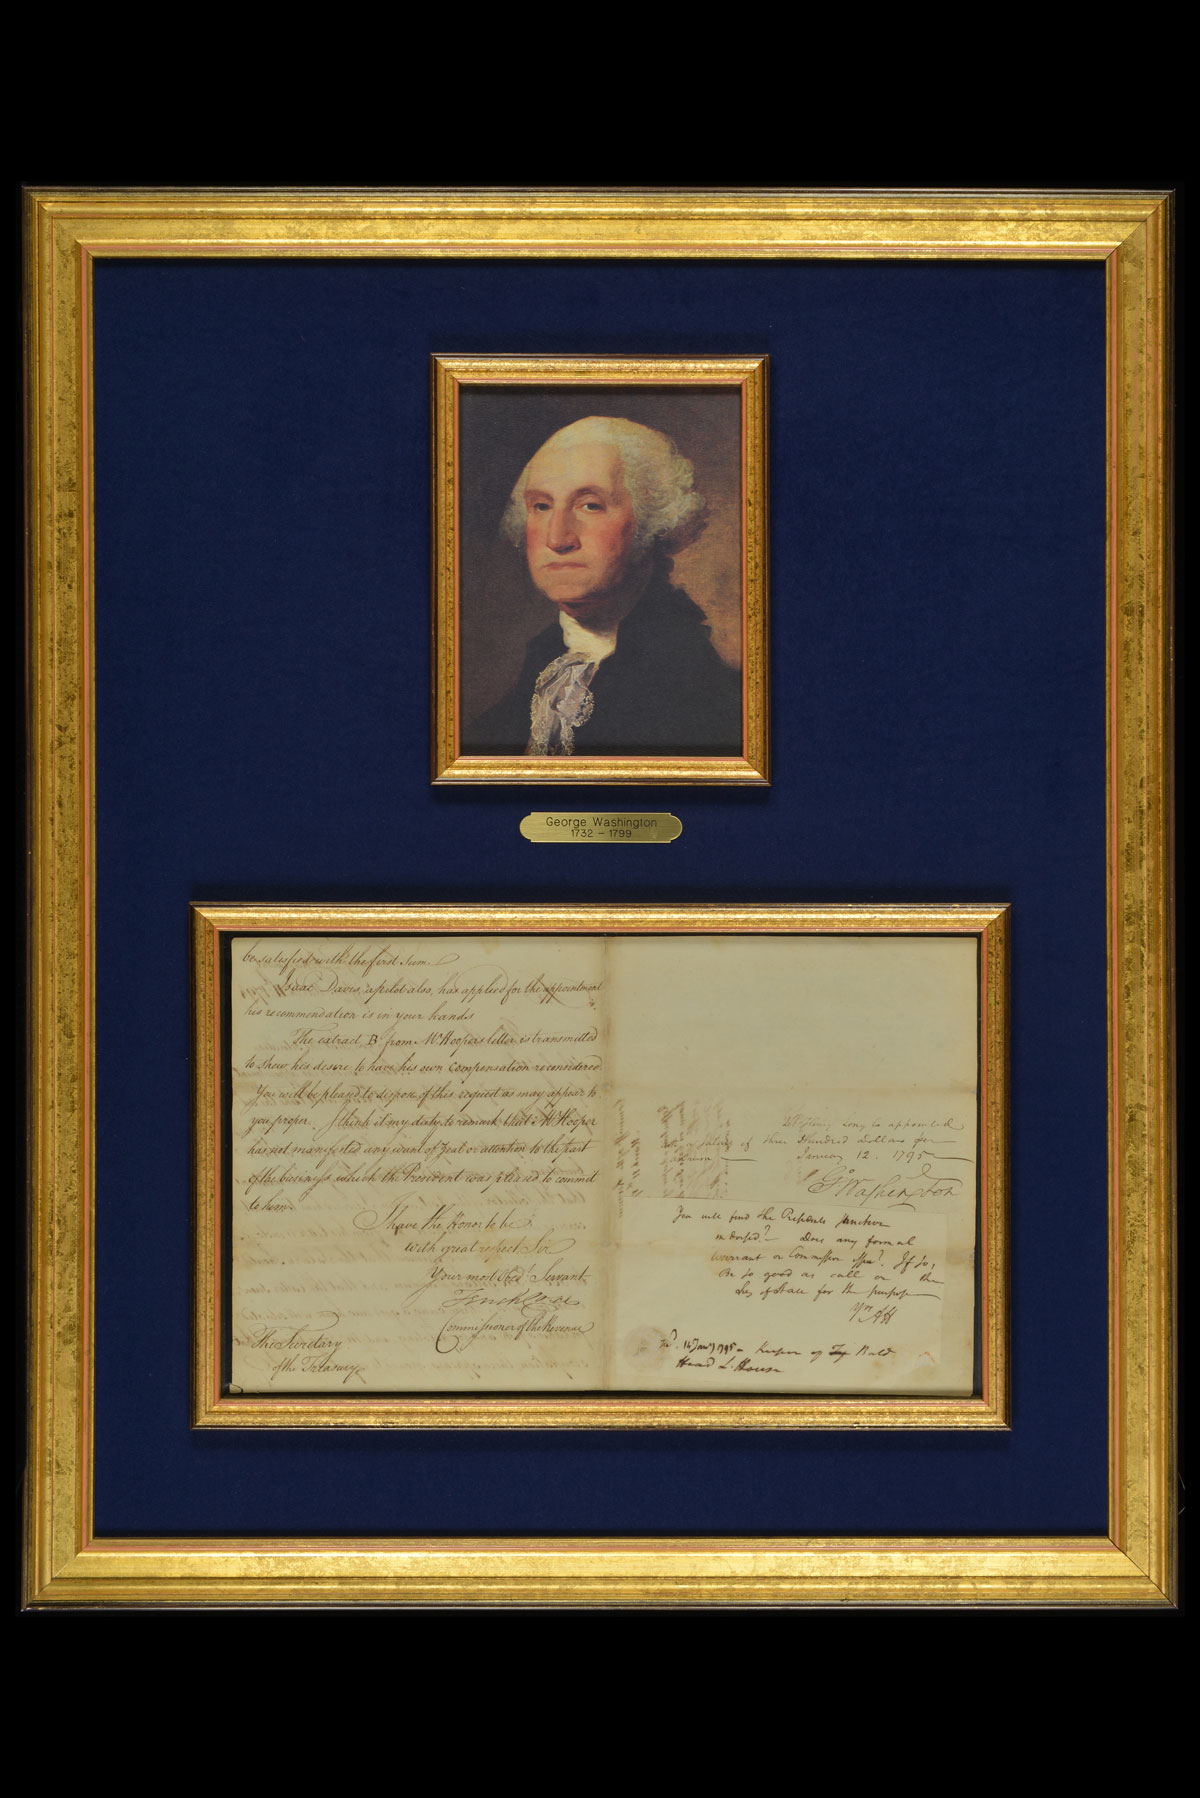 George Washington
1732 – 1799
be satisfied with the first Sum.
Isaac Davis, a pilot also, has applied for the appointment
his recommendation is in your hands
The extract B. from Mr Hoopers letter is transmitted
to shew his desire to have his own Compensation reconsidered.
You will be pleased to dispose of this request as may appear to
you proper. I think it my duty to remark that Mr Hooper
has not manifested any want of Zeal or attention to the part
of the business which the President was pleased to commit
to him.
I have the Honor to be
with great respect, Sir
Your most Obedt Servant
Tench Coxe
Commissioner of the Revenue
The Secretary
of the Treasury
long is appointed
salary of three Hundred dollars per
January 12. 1795
Go Washington
You will find the Presidents
indorsed. Does any formal
warrant or Commission If so,
be so good as call on the
Secy of State for the purpose
Yrs AH
14 Jany 1795 Keeper of Bald
Head L. House